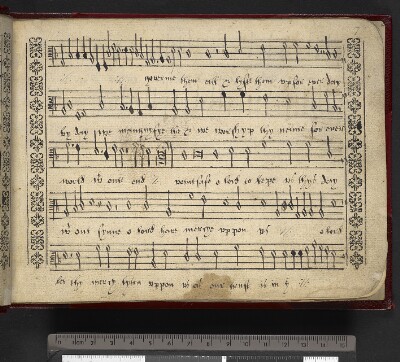 governe them and & lyft them upp for ever day
by day we magnyfye the & we worshyp thy name for ever
world wt out end vouchsafe o lord to kepe us thys day
wt out synne o lord have mercye uppon us o lord
let thy mercy uppon us as our trust is in